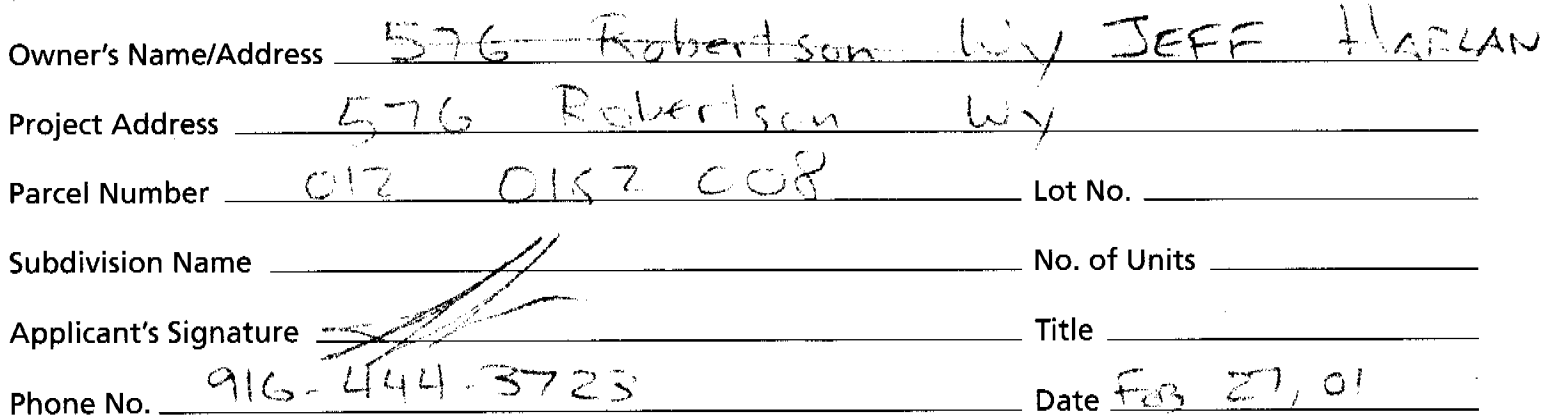 Owner's Name/Address 576 Robertson Wy JEFF HARLAN
Project Address 576 Robertson Wy
Parcel Number 012 0152 008 Lot No.
Subdivision Name No. of Units
Applicant's Signature Title
Phone No. 916-444-3723 Date FEB 27, 01